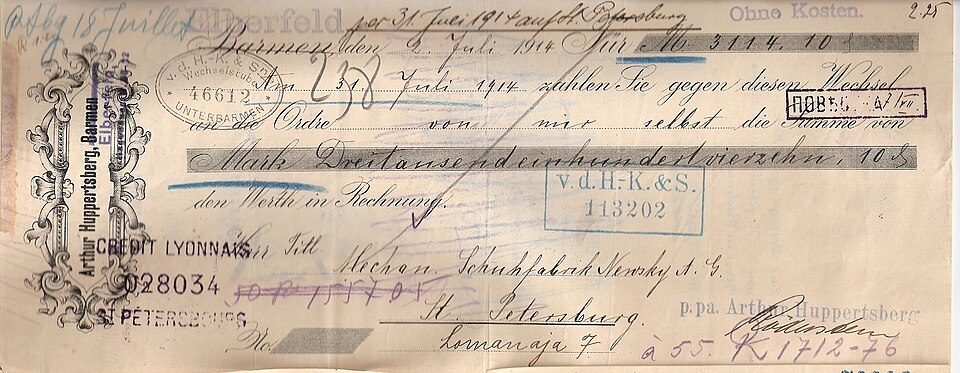 Ptbg 18 Juillet
Elberfeld
per 31. Juli 1914 auf St. Petersburg
Ohne Kosten.
2.25
Barmen, den 2. Juli 1914 Für M. 3114.10 ₰
v.d.H-K. & S.
Wechselstube
46612
UNTERBARMEN
238
Am 31 Juli 1914 zahlen Sie gegen diesen Wechsel
an die Ordre von mir selbst die Summe von
Mark Dreitausendeinhundertvierzehn, 10 ₰
den Werth in Rechnung.
v.d.H.-K.&S.
113202
Arthur Huppertsberg, Barmen
Elberfeld
CRÉDIT LYONNAIS
028034
ST PÉTERSBOURG
Herrn Titl.
Mechan. Schuhfabrik Newsky A. G.
St. Petersburg.
Lomanaja 7
No.
p.pa. Arthur Huppertsberg
à 55. K 1712-76